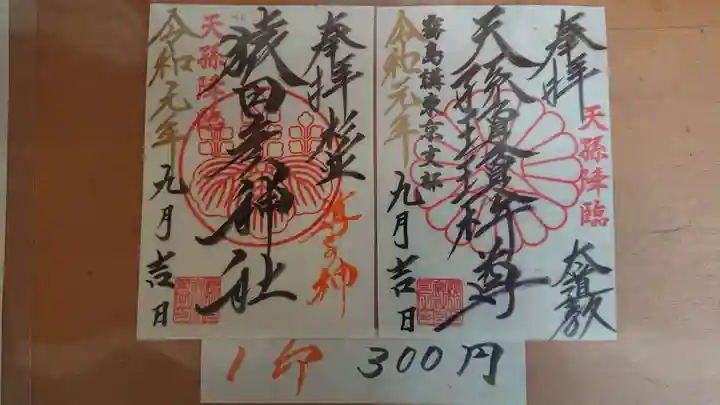 奉拝
天孫降臨
天孫瓊瓊杵尊
大道教
霧島講東京支部
令和元年
九月吉日
奉拝
猿田彦神社
天孫降臨
令和元年
九月吉日
1印 300円